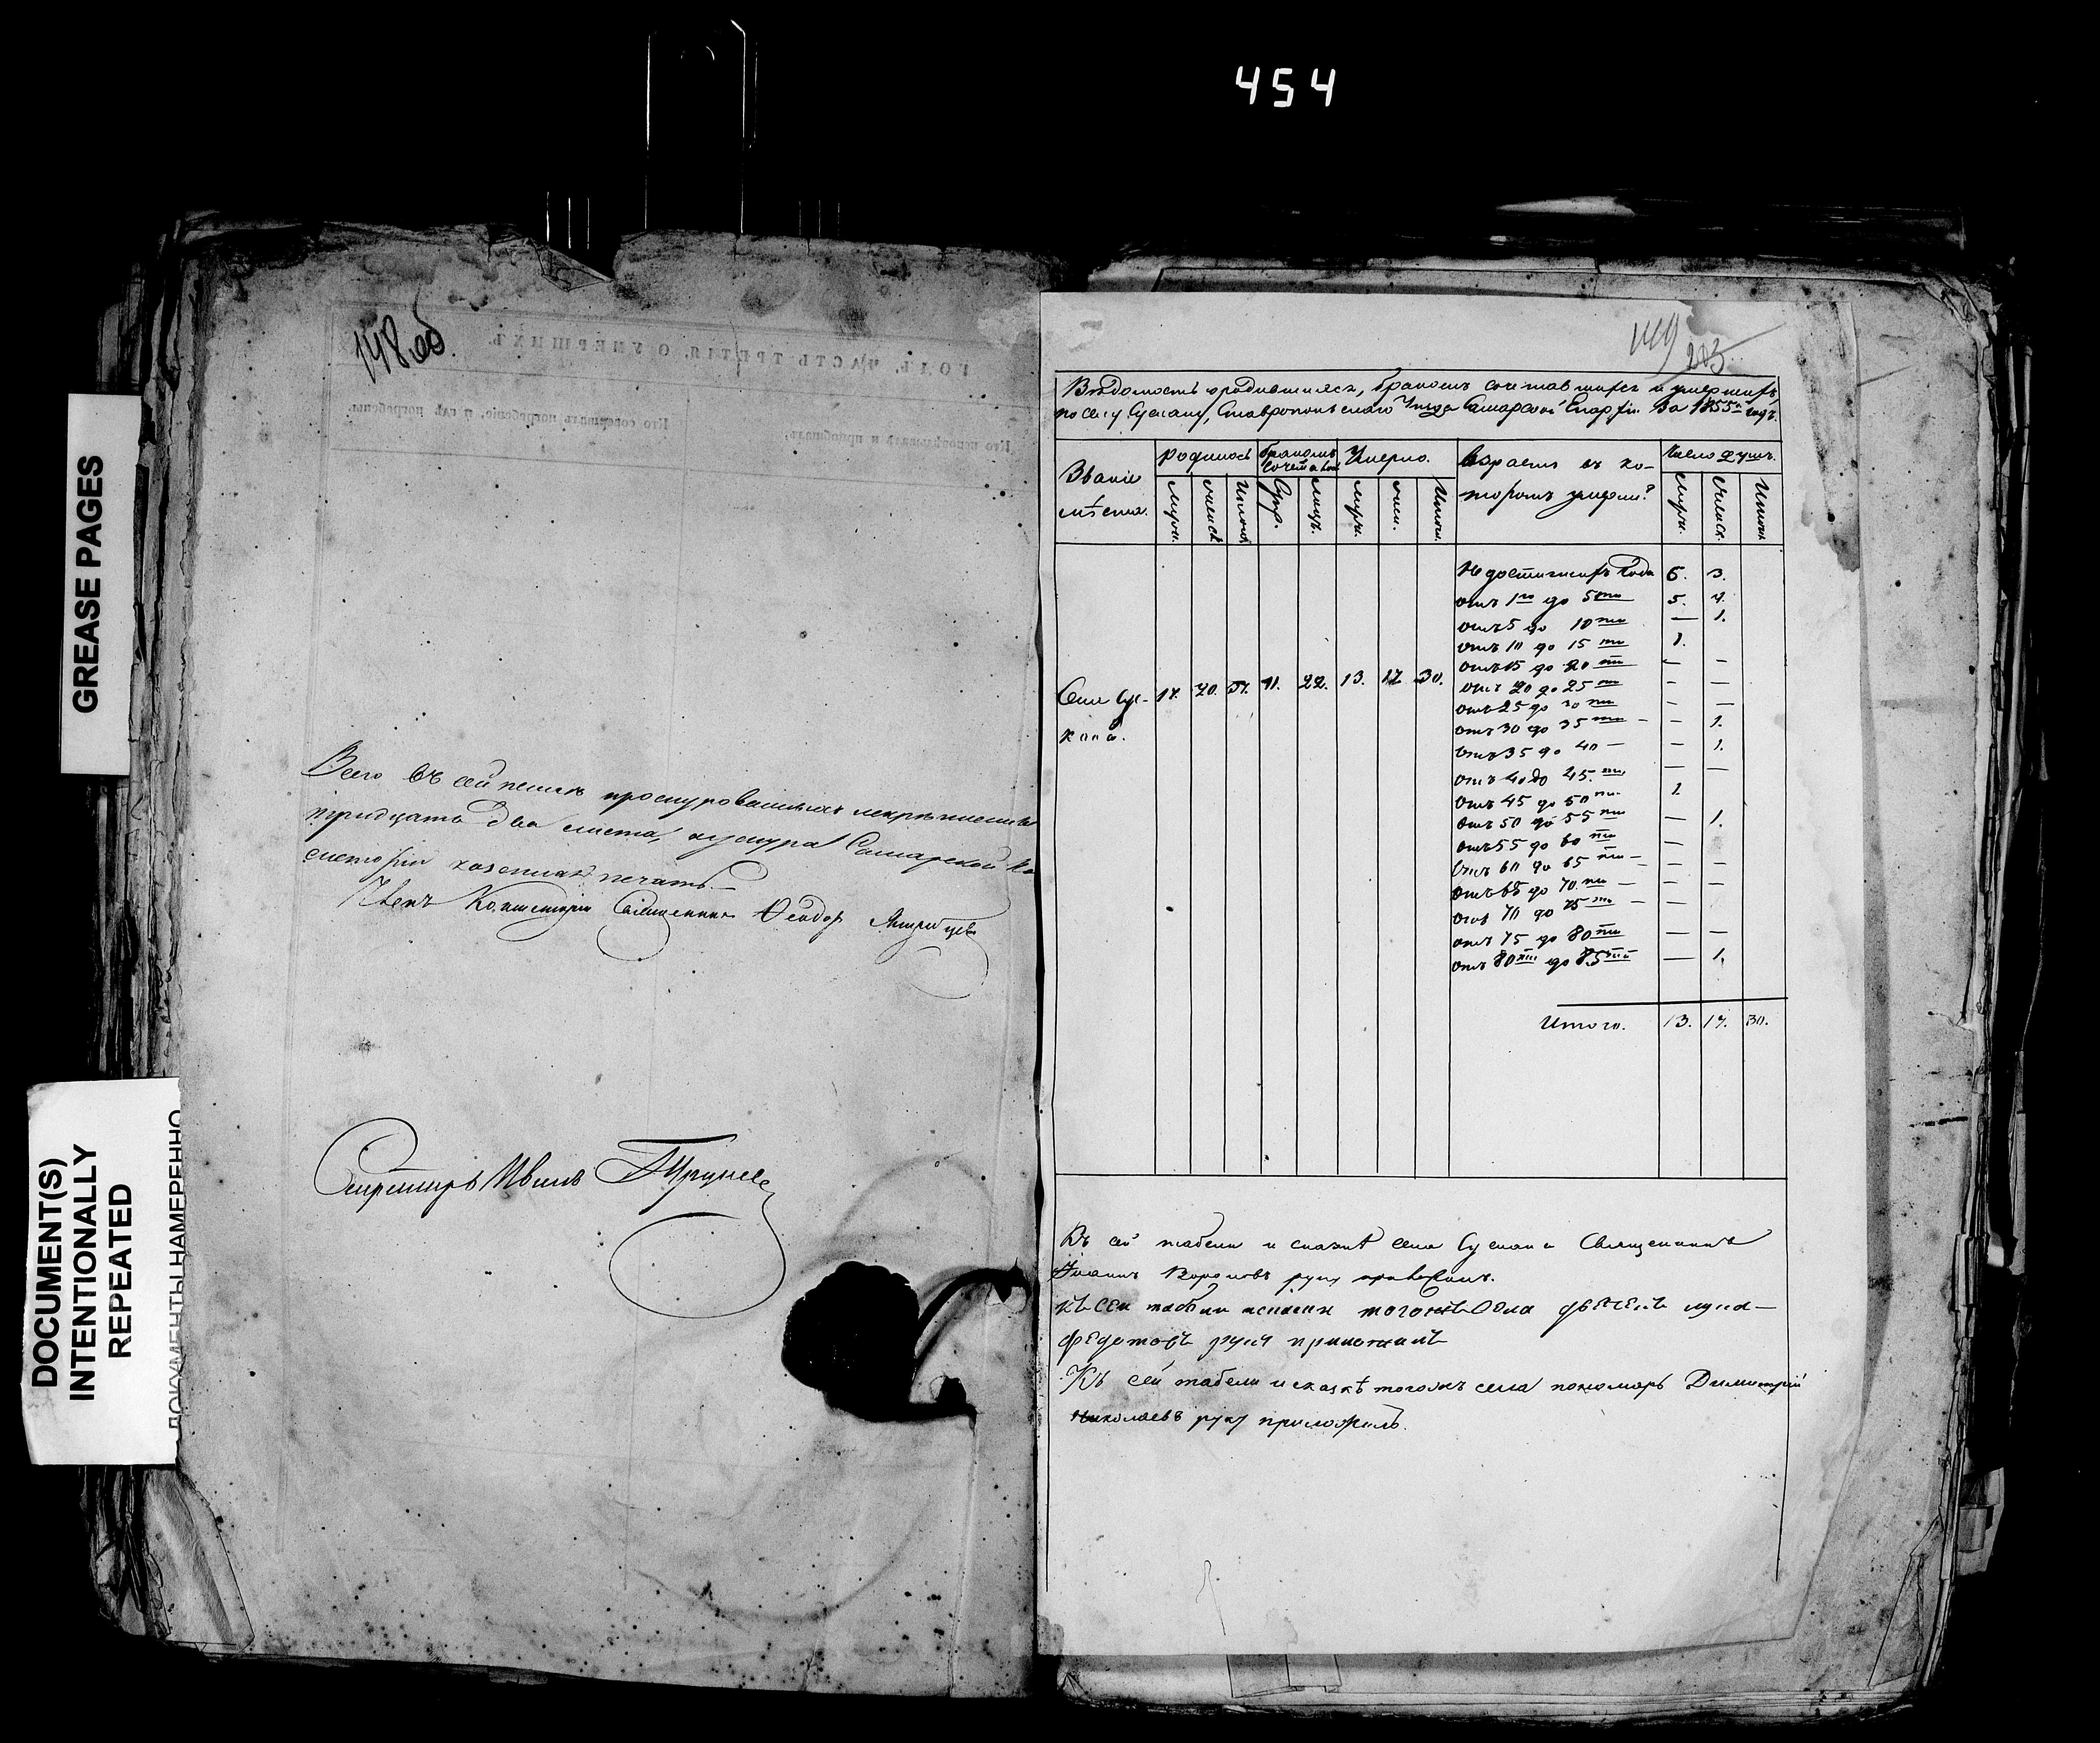 454
GREASE PAGES
DOCUMENT(S)
INTENTIONALLY
REPEATED
ДОКУМЕНТЫ НАМЕРЕННО
148 об.
ГОДЪ, ЧАСТЬ ТРЕТІЯ, О УМЕРШИХЪ.
Кто исповѣдывалъ и пріобщалъ.
Кто совершалъ погребеніе, и гдѣ погребены.
Всего въ сей
тридцать два листа, Самарской Ко
систоріи казенная печать.
Членъ Консисторіи Священникъ Ѳеодоръ
Секретарь Иванъ
149
203
Вѣдомость о родившихся, бракомъ сочетавшихся и умершихъ,
по селу Сускану, Ставропольскаго Уѣзда Самарской Епархіи за 1855й годъ.
Званіе мѣста.
Родилось
бракомъ сочетались
Умерло.
Возрастъ въ которомъ умерли?
Число душъ.
муж. женск. Итого Супр. лицъ. муж. жен. Итого. муж. женск. Итого
Село Сускана. 17. 20. 37. 11. 22. 13. 17. 30.
Недостигшихъ года 6. 3.
отъ 1го до 5ти 5.
отъ 5 до 10ти — 1.
отъ 10 до 15ти 1.
отъ 15 до 20ти — —
отъ 20 до 25ти — —
отъ 25 до 30ти — —
отъ 30 до 35ти — — 1.
отъ 35 до 40 — — 1.
отъ 40 до 45ти — —
отъ 45 до 50ти 1.
отъ 50 до 55ти — 1.
отъ 55 до 60ти —
отъ 60 до 65ти — — —
отъ 65 до 70ти — — —
отъ 70 до 75ти — —
отъ 75 до 80ти — —
отъ 80ти до 85ти — 1.
Итого. 13. 17. 30.
Къ сей табели и сказкѣ села Сускана Священникъ
Іоаннъ Вороновъ руку приложилъ.
Къ сей табели и сказки тогожъ села
Федотовъ руку приложилъ
Къ сей табели и сказкѣ тогожъ села пономарь Димитрій
Николаевъ руку приложилъ.